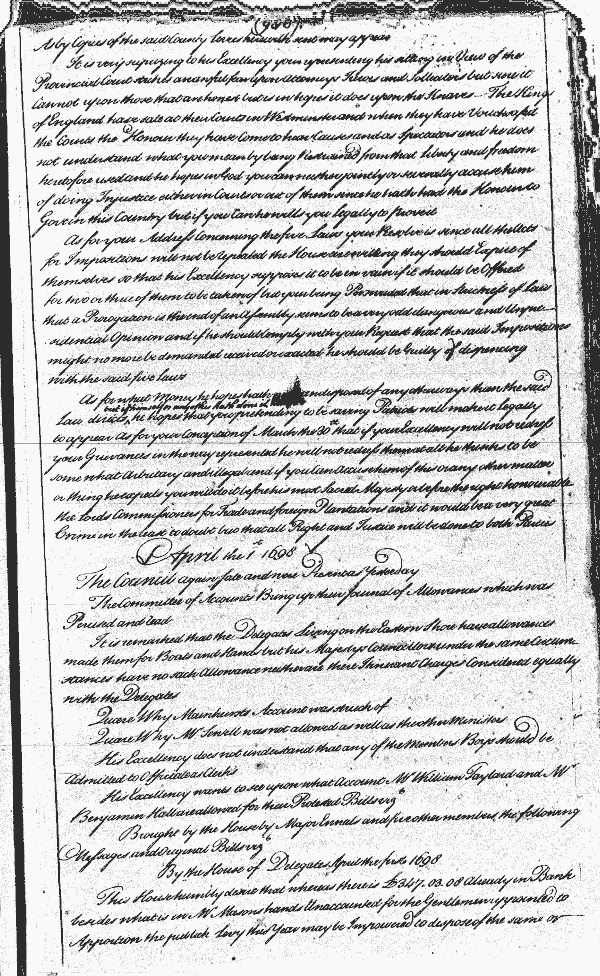 As by Copies of the said County Laws herewith sent may appear
It is very suprizing to his Excellency your representing his sitting in View of the
Provincial Court strikes an awful fear upon Attorneys Jurors and Sollicitors but since it
Cannot upon those that are honest but is in hopes it does upon the Knaves The Kings
of England have sate at their Courts in Westminster and when they have Vouchsafed
the Courts the Honour they have Come to hear Causes and as Spectators and he does
not understand what you mean by being Restrained from that liberty and freedom
heretofore used and he hopes in God you can neither joyntly or severally accuse him
of doing Injustice either in Courts or out of them since he hath had the Honour to
Govern this Country but if you Can he wills you legally to prove it
As for your Address Concerning the five Laws your Resolve is since all the Acts
for Impositions will not be repealed the House are willing they should Expire of
themselves so that his Excellency supposes it to be in vain if it should be Offered
for two or three of them to be taken of but your being Perswaded that in Strictness of Law
that a Prorogation is the end of an Assembly seems to be a very odd dangerous and Unpre-
sidential Opinion and if he should comply with your Request that the said Impositions
might no more be demanded received or exacted he should be Guilty of dispencing
with the said five laws
As for what Money he hopes hath been disposed of any otherways than the said
but if himself or any other hath done it
Law directs he hopes that you pretending to be saving Patriots will make it legally
to appear As for your Conclusion of March the 30th that if your Excellency will not redress
your Grievances in the way represented he will not redress them at all he thinks to be
some what Arbitrary and illegal and if you can accuse him of this or any other matter
or thing he expects you will do it before his most Sacred Majesty or before the right honourable
the Lords Commissioners for Trade and foreign Plantations and it would be a very great
Crime in the least to doubt but that all Right and Justice will be done to both Parties
April the 1st 1698
The Council again sate and were Present as Yesterday
The Committee of Accounts Bring up their Journal of Allowances which was
Perused and read
It is remarked that the Delegates Living on the Eastern Shore have allowances
made them for Boats and Hands but his Majestys Councellors under the same Circum-
stances have no such Allowance neither are there Itinerant Charges Considered equally
with the Delegates
Quare Why Mainhursts Account was struck of
Quare Why Mr Sewell was not allowed as well as the other Ministers
His Excellency does not understand that any of the Members Boys should be
Admitted to Officiate as Clerks
His Excellency wants to see upon what Account Mr William Taylard and Mr
Benjamin Hall are allowed for their Protested Bills vizt
Brought by the House by Major Ennals and five other members the following
Messages and Original Bills vizt
By the House of Delegates April the first 1698
This House humbly desire that whereas there is £347.03.08 Already in Bank
besides what is in Mr Masons hands Unaccounted for the Gentlemen appointed to
Apportion the publick Levy this Year may be Impowered to dispose of the same or